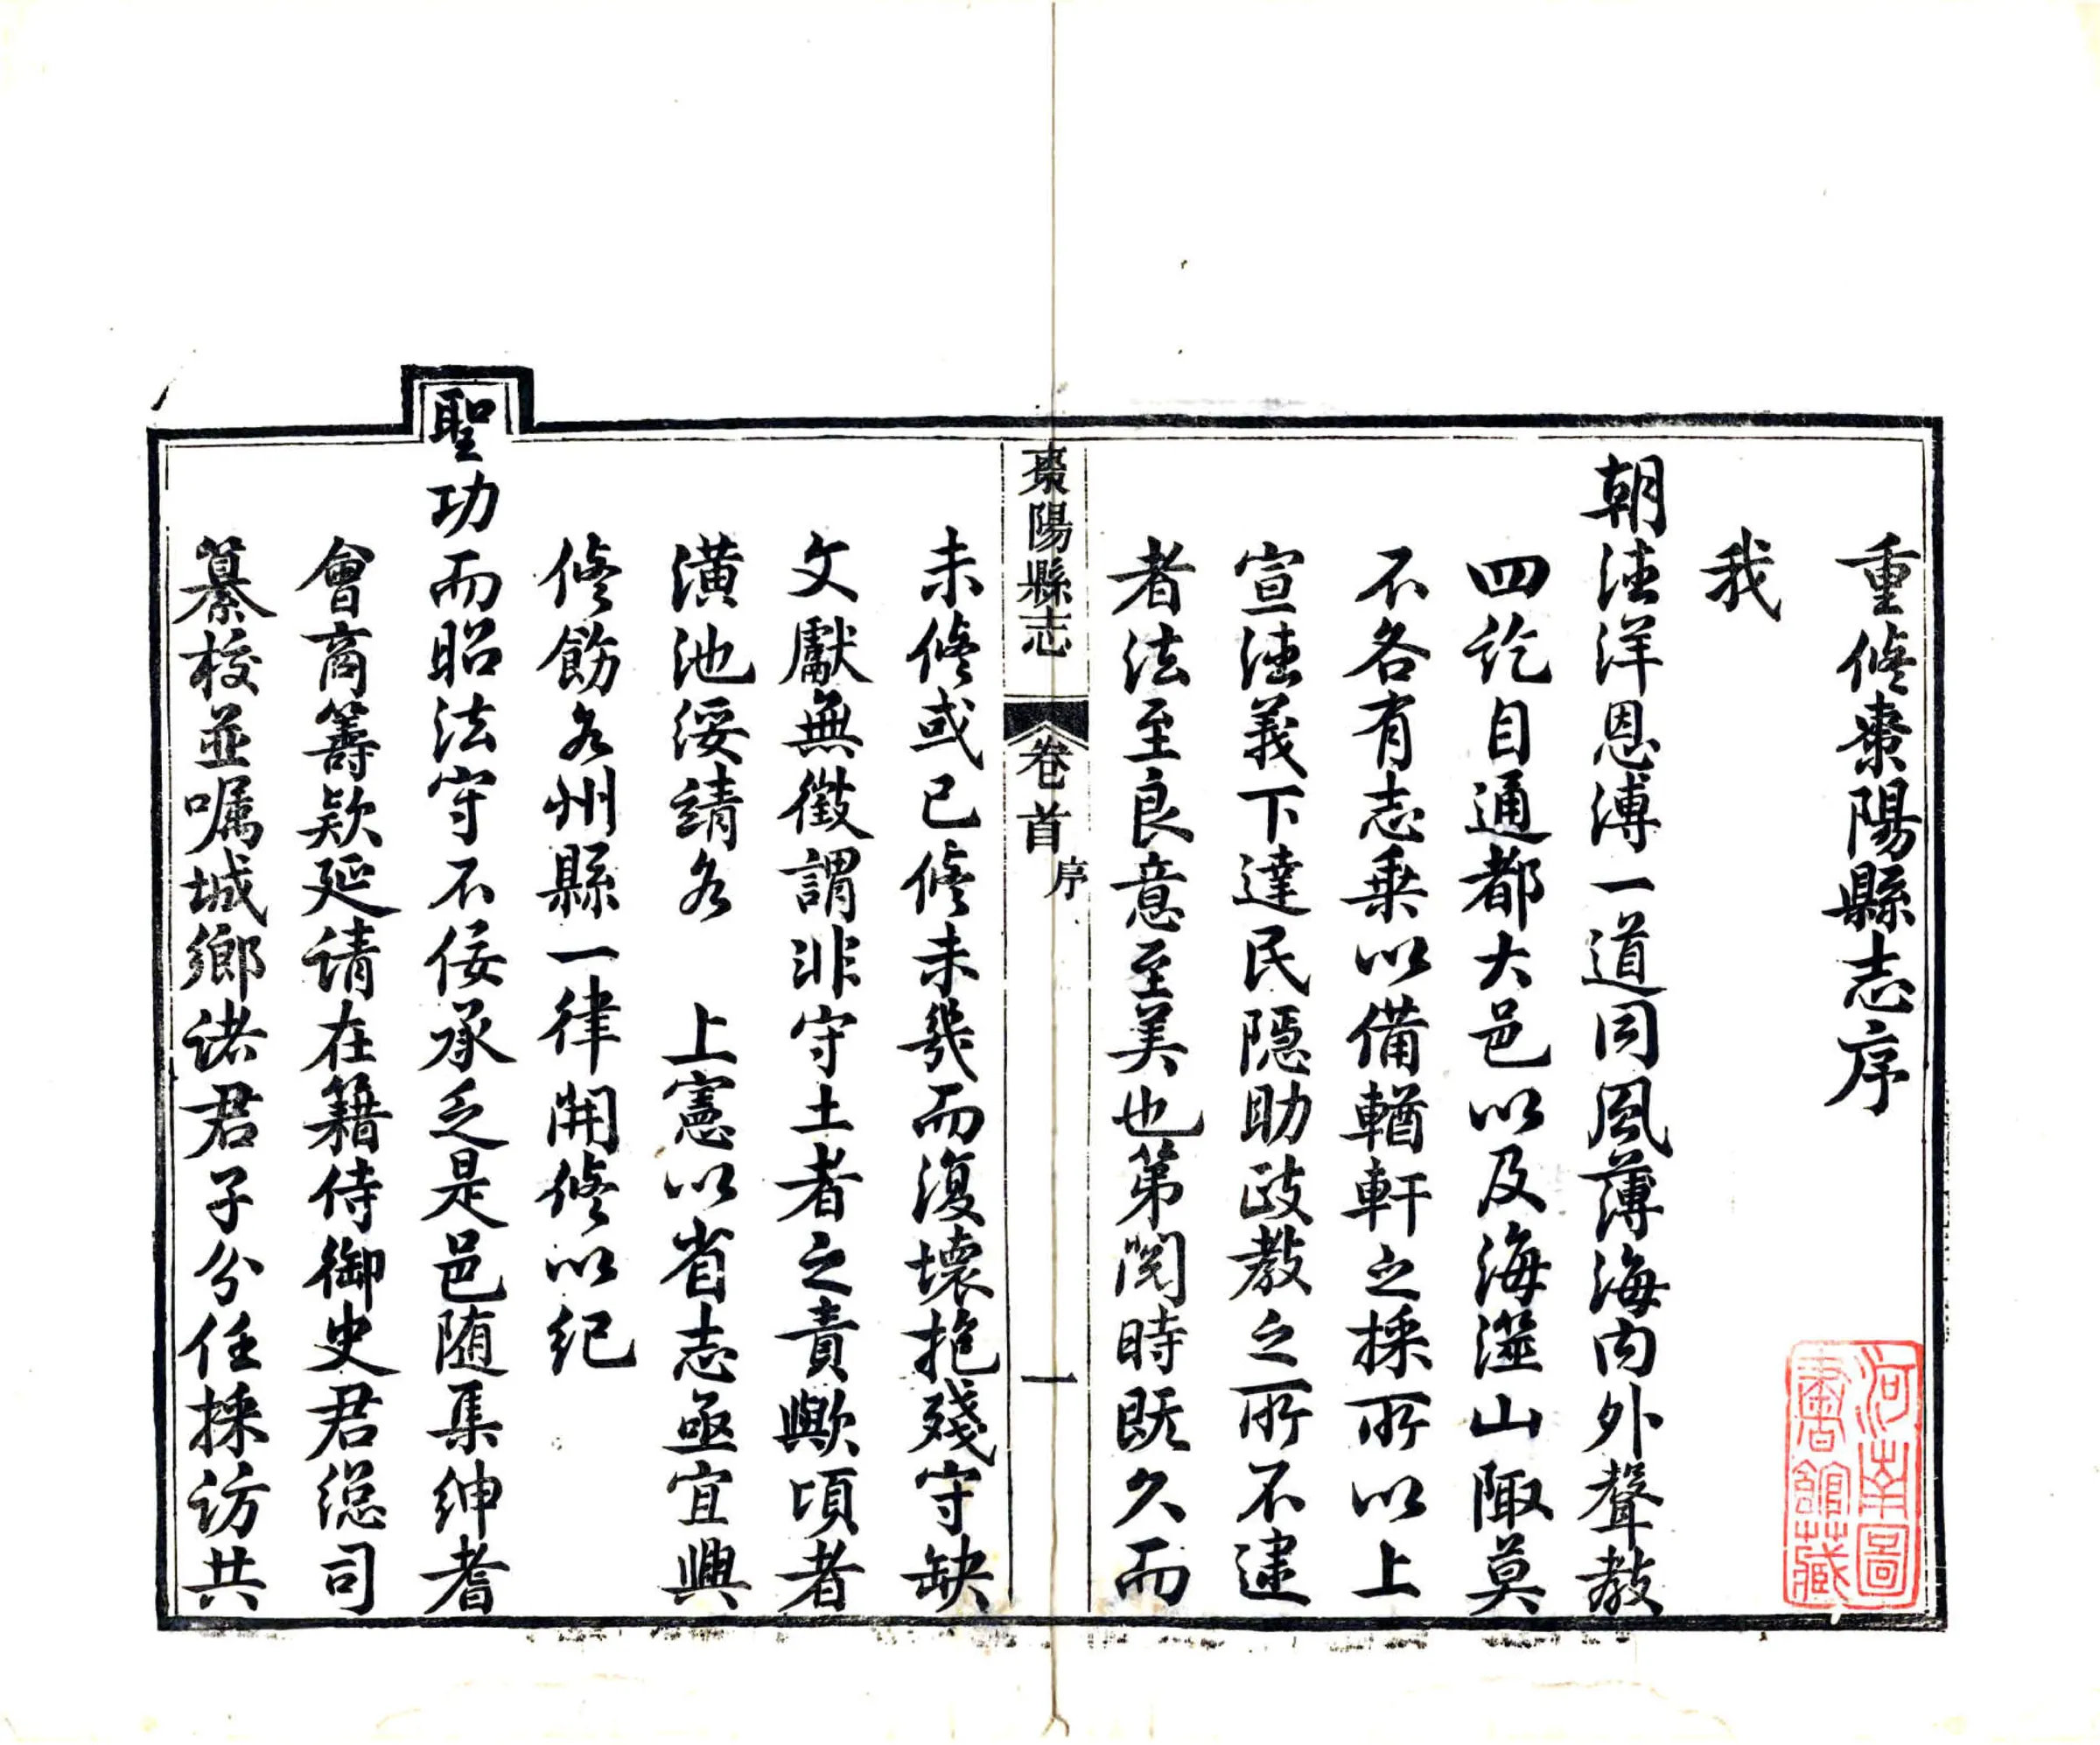 重修棗陽縣志序
我
朝德洋恩溥一道同風薄海內外聲教
四訖自通都大邑以及海澨山陬莫
不各有志乗以備輶軒之採所以上
宣德義下達民隱助政教之所不逮
者法至良意至美也第閱時既久而
棗陽縣志
卷首
序
一
未修或已修未幾而復壞抱殘守缺
文獻無徵謂非守土者之責歟頃者
潢池綏靖各 上憲以省志亟宜興
修飭各州縣一律開修以紀
聖功而昭法守不佞承乏是邑随集紳耆
會商籌款延请在籍侍御史君總司
纂校並嘱城鄉诸君子分任採访共
河南圖
書館藏